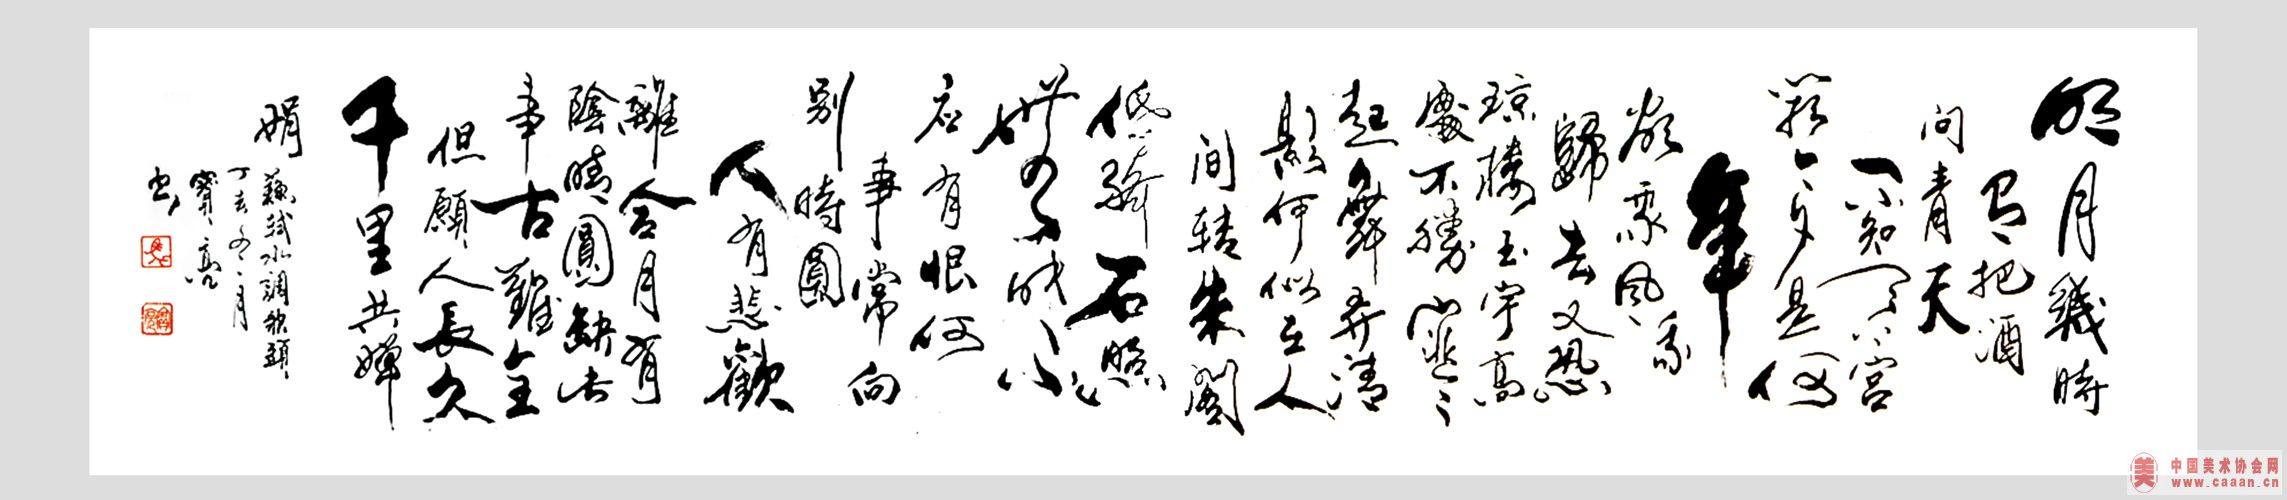 明月幾時
有把酒
问青天
不知天上宫
闕今夕是何
年
欲乘风
歸去又恐
琼楼玉宇高
處不勝寒
起舞弄清
影何似在人
间转朱阁
低绮户照
無眠不
应有恨何
事常向
别時圓
人有悲歡
離合月有
陰晴圓缺此
事古難全
但願人長久
千里共嬋
娟
蘇軾水調歌頭
丁亥冬月
寶亮
书
中国美术协会网
www.caaan.cn